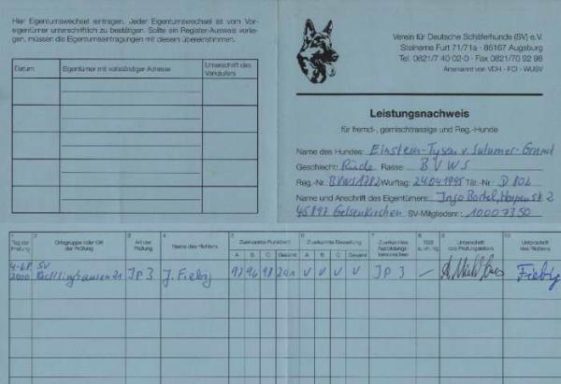 Hier Eigentumswechsel eintragen. Jeder Eigentumswechsel ist vom Vor-
eigentümer unterschriftlich zu bestätigen. Sollte ein Register-Ausweis vorlie-
gen, müssen die Eigentumseintragungen mit diesem übereinstimmen.
Datum
Eigentümer mit vollständiger Adresse
Unterschrift des
Verkäufers
Verein für Deutsche Schäferhunde (SV) e.V.
Steinerne Furt 71/71a · 86167 Augsburg
Tel. 0821/7 40 02-0 · Fax 0821/70 92 98
Anerkannt von VDH · FCI · WUSV
Leistungsnachweis
für fremd-, gemischtrassige und Reg.-Hunde
Name des Hundes: Einstein-Tyson v.
Geschlecht: Rüde Rasse: BVWS
Reg.-Nr. Wurftag: 24.04.1995 Tät.-Nr.
Name und Anschrift des Eigentümers: Ingo
Gelsenkirchen SV-Mitgliedsnr.:
Tag der
Prüfung
Ortsgruppe oder Ort
der Prüfung
Art der
Prüfung
Name des Richters
Zuerkannte Punktzahl
A B C Gesamt
Zuerkannte Bewertung
A B C Gesamt
Zuerkanntes
Ausbildungs-
kennzeichen
Unterschrift
des Prüfungsleiters
Unterschrift
des Richters
2000 SV JP 3 J. Fiebig V V V V JP 3 – Fiebig